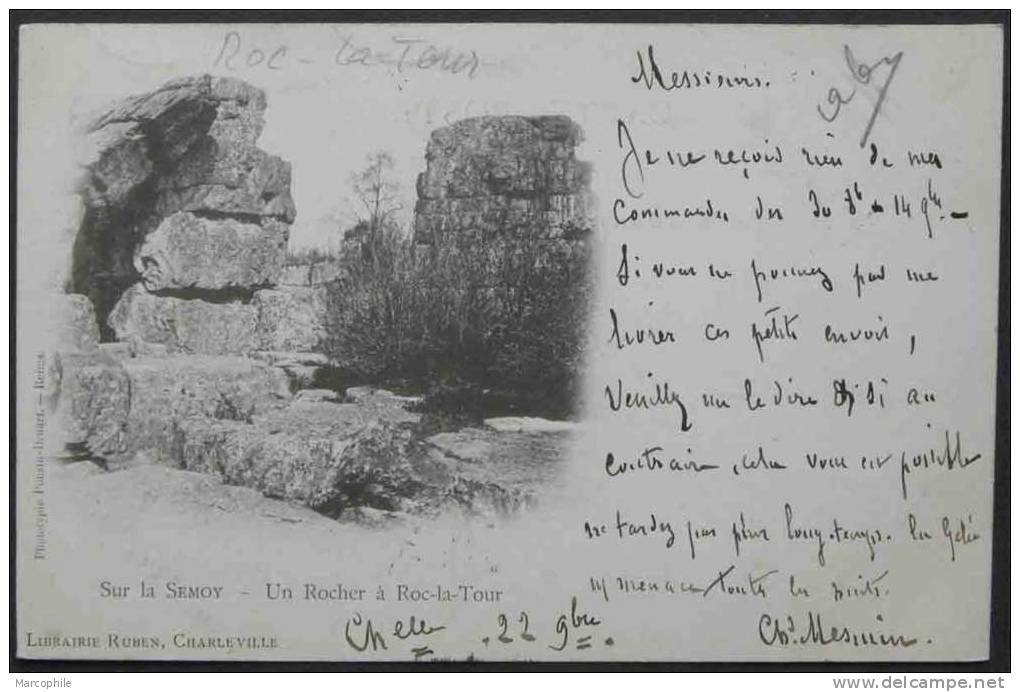 Roc-la-Tour
Messieurs.
Je ne reçois rien de mes
commandes des 30 8b & 14 9bre
Si vous ne pouvez pas me
livrer ces petits envois,
Veuillez me le dire & si au
contraire, cela vous est possible
ne tardez pas plus longtemps. La Gelée
menace toutes les nuits.
Ch. Mesmin.
Chelle . 22 9bre.
Phototypie Ponsin-Druart. — Reims
Sur la SEMOY - Un Rocher à Roc-la-Tour
LIBRAIRIE RUBEN, CHARLEVILLE
© Marcophile
http://www.delcampe.net